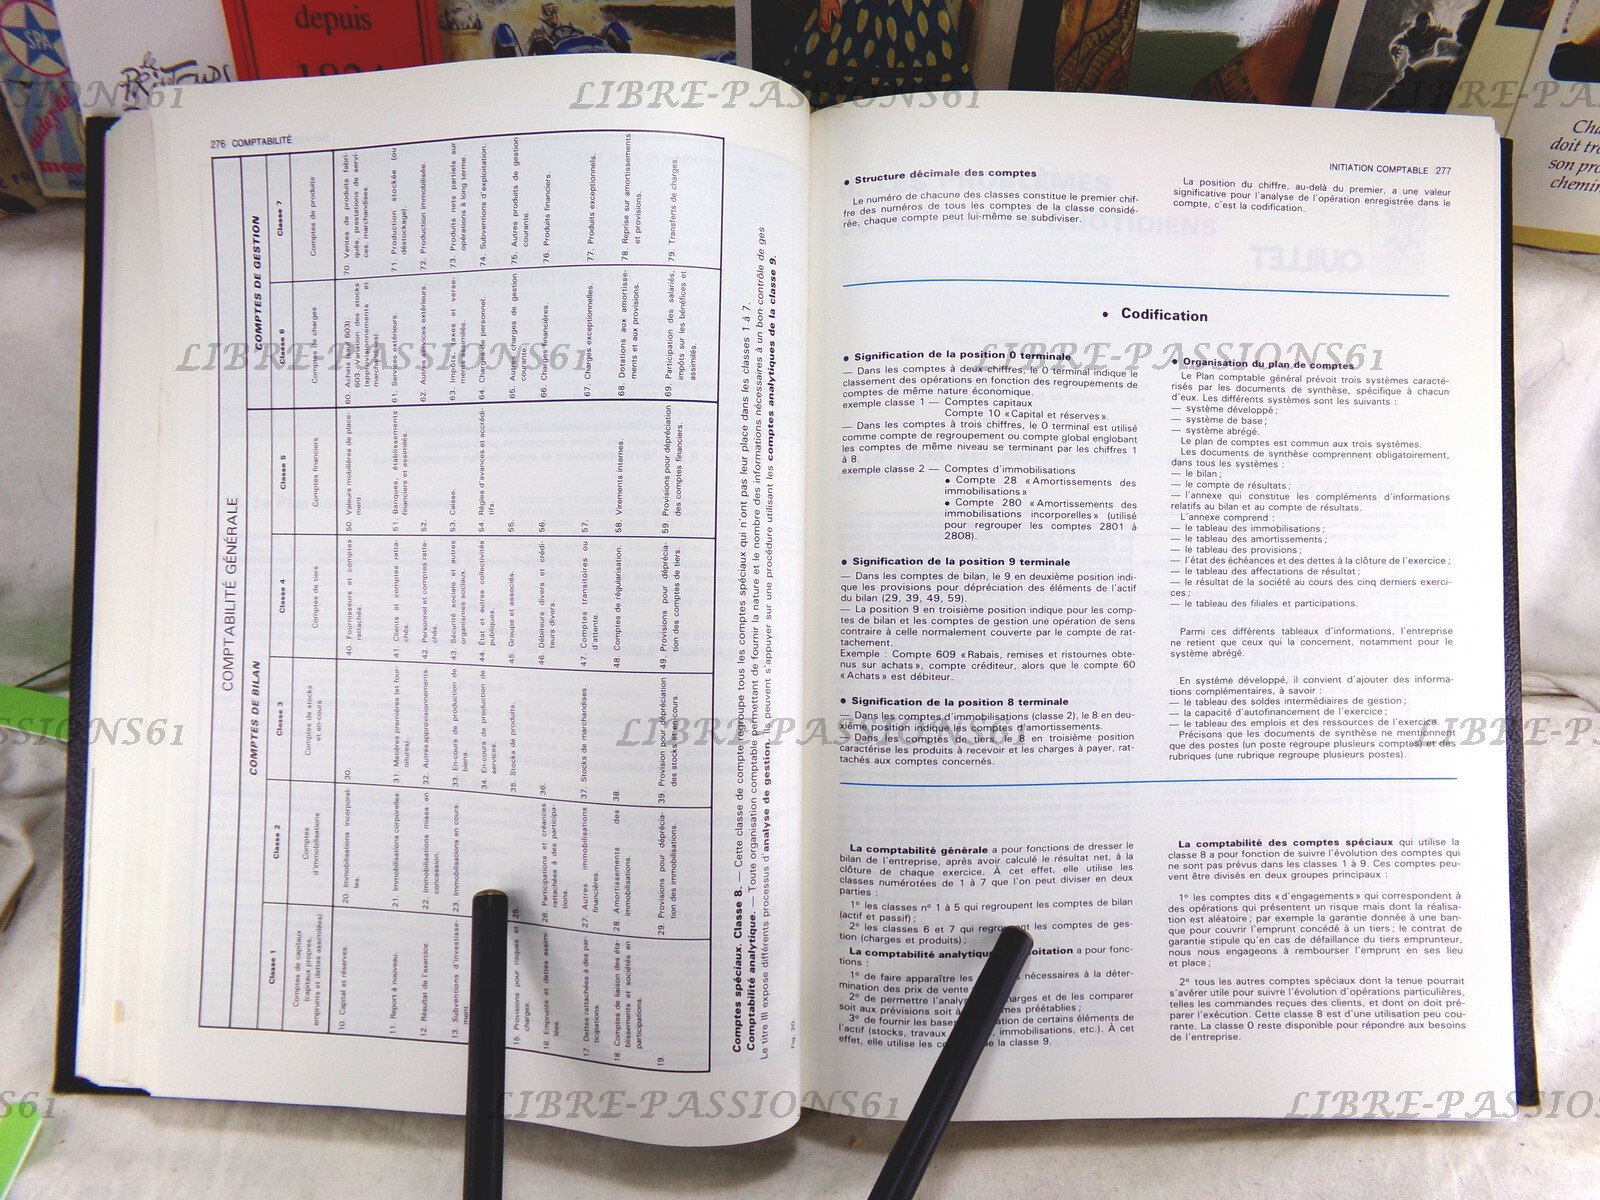 SPA
le
PRINTEMPS
depuis
LIBRE-PASSIONS61
276 COMPTABILITÉ
COMPTABILITÉ GÉNÉRALE
COMPTES DE BILAN
COMPTES DE GESTION
Classe 1
Comptes de capitaux
(capitaux propres,
emprunts et dettes assimilées)
10. Capital et réserves.
11. Report à nouveau.
12. Résultat de l'exercice.
13. Subventions d'investisse-
ment
15. Provisions pour risques et
charges.
16. Emprunts et dettes assimi-
lées.
17. Dettes rattachées à des par-
ticipations.
18. Comptes de liaison des éta-
blissements et sociétés en
participations.
19.
Classe 2
Comptes
d'immobilisations
20. Immobilisations incorporel-
les.
21. Immobilisations corporelles.
22. Immobilisations mises en
concession.
23. Immobilisations en cours.
25.
26. Participations et créances
rattachées à des participa-
tions.
27. Autres immobilisations
financières.
28. Amortissements des
immobilisations.
29. Provisions pour déprécia-
tion des immobilisations.
Classe 3
Comptes de stocks
et en-cours
30.
31. Matières premières (et four-
nitures).
32. Autres approvisionnements.
33. En-cours de production de
biens.
34. En-cours de production de
services.
35. Stocks de produits.
36.
37. Stocks de marchandises.
38.
39. Provision pour dépréciation
des stocks et en-cours.
Classe 4
Comptes de tiers
40. Fournisseurs et comptes
rattachés.
41. Clients et comptes ratta-
chés.
42. Personnel et comptes ratta-
chés.
43. Sécurité sociale et autres
organismes sociaux.
44. État et autres collectivités
publiques.
45. Groupe et associés.
46. Débiteurs divers et crédi-
teurs divers.
47. Comptes transitoires ou
d'attente.
48. Comptes de régularisation.
49. Provisions pour déprécia-
tion des comptes de tiers.
Classe 5
Comptes financiers
50. Valeurs mobilières de place-
ment.
51. Banques, établissements
financiers et assimilés.
52.
53. Caisse.
54. Régies d'avances et accrédi-
tifs
55.
56.
57.
58. Virements internes.
59. Provisions pour dépréciation
des comptes financiers.
Classe 6
Comptes de charges
60. Achats (sauf 603).
603. Variation des stocks
(approvisionnements et
marchandises)
61. Services extérieurs.
62. Autres services extérieurs.
63. Impôts, taxes et verse-
ments assimilés.
64. Charges de personnel.
65. Autres charges de gestion
courante.
66. Charges financières.
67. Charges exceptionnelles.
68. Dotations aux amortisse-
ments et aux provisions.
69. Participation des salariés,
impôts sur les bénéfices et
assimilés.
Classe 7
Comptes de produits
70. Ventes de produits fabri-
qués, prestations de servi-
ces, marchandises.
71. Production stockée (ou
déstockage).
72. Production immobilisée.
73. Produits nets partiels sur
opérations à long terme.
74. Subventions d'exploitation.
75. Autres produits de gestion
courante.
76. Produits financiers.
77. Produits exceptionnels.
78 Reprise sur amortissements
et provisions.
79. Transferts de charges.
Comptes spéciaux. Classe 8. — Cette classe de compte regroupe tous les comptes spéciaux qui n'ont pas leur place dans les classes 1 à 7.
Comptabilité analytique. — Toute organisation comptable permettant de fournir la nature et le nombre des informations nécessaires à un bon contrôle de ges
Le titre III expose différents processus d'analyse de gestion. Ils peuvent s'appuyer sur une procédure utilisant les comptes analytiques de la classe 9.
INITIATION COMPTABLE 277
• Structure décimale des comptes
Le numéro de chacune des classes constitue le premier chif-
fre des numéros de tous les comptes de la classe considé-
rée, chaque compte peut lui-même se subdiviser.
La position du chiffre, au-delà du premier, a une valeur
significative pour l'analyse de l'opération enregistrée dans le
compte, c'est la codification.
• Codification
• Signification de la position 0 terminale
— Dans les comptes à deux chiffres, le 0 terminal indique le
classement des opérations en fonction des regroupements de
comptes de même nature économique.
exemple classe 1 — Comptes capitaux
Compte 10 «Capital et réserves».
— Dans les comptes à trois chiffres, le 0 terminal est utilisé
comme compte de regroupement ou compte global englobant
les comptes de même niveau se terminant par les chiffres 1
à 8.
exemple classe 2 — Comptes d'immobilisations
• Compte 28 «Amortissements des
immobilisations»
• Compte 280 «Amortissements des
immobilisations incorporelles» (utilisé
pour regrouper les comptes 2801 à
2808).
• Signification de la position 9 terminale
— Dans les comptes de bilan, le 9 en deuxième position indi-
que les provisions pour dépréciation des éléments de l'actif
du bilan (29, 39, 49, 59).
— La position 9 en troisième position indique pour les comp-
tes de bilan et les comptes de gestion une opération de sens
contraire à celle normalement couverte par le compte de rat-
tachement.
Exemple : Compte 609 «Rabais, remises et ristournes obte-
nus sur achats», compte créditeur, alors que le compte 60
«Achats» est débiteur.
• Signification de la position 8 terminale
— Dans les comptes d'immobilisations (classe 2), le 8 en deu-
xième position indique les comptes d'amortissements.
— Dans les comptes de tiers, le 8 en troisième position
caractérise les produits à recevoir et les charges à payer, rat-
tachés aux comptes concernés.
• Organisation du plan de comptes
Le Plan comptable général prévoit trois systèmes caracté-
risés par les documents de synthèse, spécifique à chacun
d'eux. Les différents systèmes sont les suivants :
— système développé ;
— système de base ;
— système abrégé.
Le plan de comptes est commun aux trois systèmes.
Les documents de synthèse comprennent obligatoirement,
dans tous les systèmes :
— le bilan ;
— le compte de résultats ;
— l'annexe qui constitue les compléments d'informations
relatifs au bilan et au compte de résultats.
L'annexe comprend :
— le tableau des immobilisations ;
— le tableau des amortissements ;
— le tableau des provisions ;
— l'état des échéances et des dettes à la clôture de l'exercice ;
— le tableau des affectations de résultat ;
— le résultat de la société au cours des cinq derniers exerci-
ces ;
— le tableau des filiales et participations.
Parmi ces différents tableaux d'informations, l'entreprise
ne retient que ceux qui la concernent, notamment pour le
système abrégé.
En système développé, il convient d'ajouter des informa-
tions complémentaires, à savoir :
— le tableau des soldes intermédiaires de gestion ;
— la capacité d'autofinancement de l'exercice ;
— le tableau des emplois et des ressources de l'exercice.
Précisons que les documents de synthèse ne mentionnent
que des postes (un poste regroupe plusieurs comptes) et des
rubriques (une rubrique regroupe plusieurs postes).
La comptabilité générale a pour fonctions de dresser le
bilan de l'entreprise, après avoir calculé le résultat net, à la
clôture de chaque exercice. À cet effet, elle utilise les
classes numérotées de 1 à 7 que l'on peut diviser en deux
parties :
1° les classes n° 1 à 5 qui regroupent les comptes de bilan
(actif et passif) ;
2° les classes 6 et 7 qui regroupent les comptes de ges-
tion (charges et produits) ;
La comptabilité analytique oitation a pour fonc-
tions :
1° de faire apparaître les nécessaires à la déter-
mination des prix de vente
2° de permettre l'analyse charges et de les comparer
soit aux prévisions soit à mes préétablies ;
3° de fournir les bases ation de certains éléments de
l'actif (stocks, travaux immobilisations, etc.). À cet
effet, elle utilise les co la classe 9.
La comptabilité des comptes spéciaux qui utilise la
classe 8 a pour fonction de suivre l'évolution des comptes qui
ne sont pas prévus dans les classes 1 à 9. Ces comptes peu-
vent être divisés en deux groupes principaux :
1° les comptes dits «d'engagements» qui correspondent à
des opérations qui présentent un risque mais dont la réalisa-
tion est aléatoire ; par exemple la garantie donnée à une ban-
que pour couvrir l'emprunt concédé à un tiers ; le contrat de
garantie stipule qu'en cas de défaillance du tiers emprunteur,
nous nous engageons à rembourser l'emprunt en ses lieu
et place ;
2° tous les autres comptes spéciaux dont la tenue pourrait
s'avérer utile pour suivre l'évolution d'opérations particulières,
telles les commandes reçues des clients, et dont on doit pré-
parer l'exécution. Cette classe 8 est d'une utilisation peu cou-
rante. La classe 0 reste disponible pour répondre aux besoins
de l'entreprise.
doit
son pr
chemin